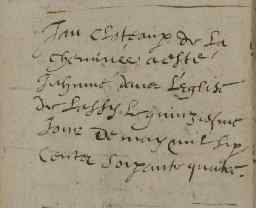 Jan Chateaux de la
cheminee a esté
Inhumé dans l'église
de Lassy le quinziesme
Jour de may mil six
Centz soixante quatre.